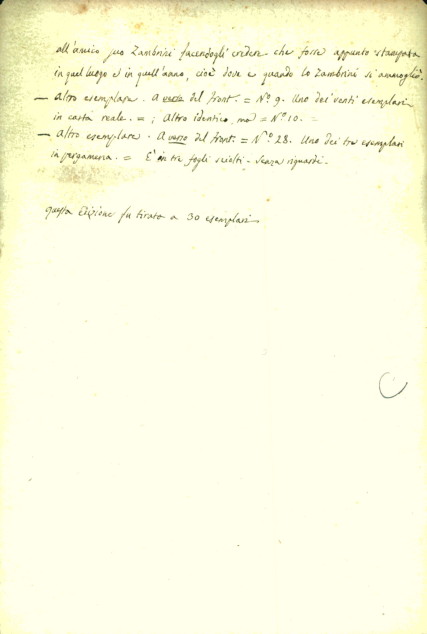 all'amico suo Zambrini facendogli credere che fosse appunto stampata
in quel luogo e in quell'anno, cioè dove e quando lo Zambrini si ammogliò.
— Altro esemplare. A verso del front. = N.º 9. Uno dei venti esemplari
in carta reale. = ; Altro identico, ma = N.º 10. =
— Altro esemplare. A verso del front. = N.º 28. Uno dei tre esemplari
in pergamena. = E' in tre fogli sciolti - senza riguardi.
Questa edizione fu tirata a 30 esemplari